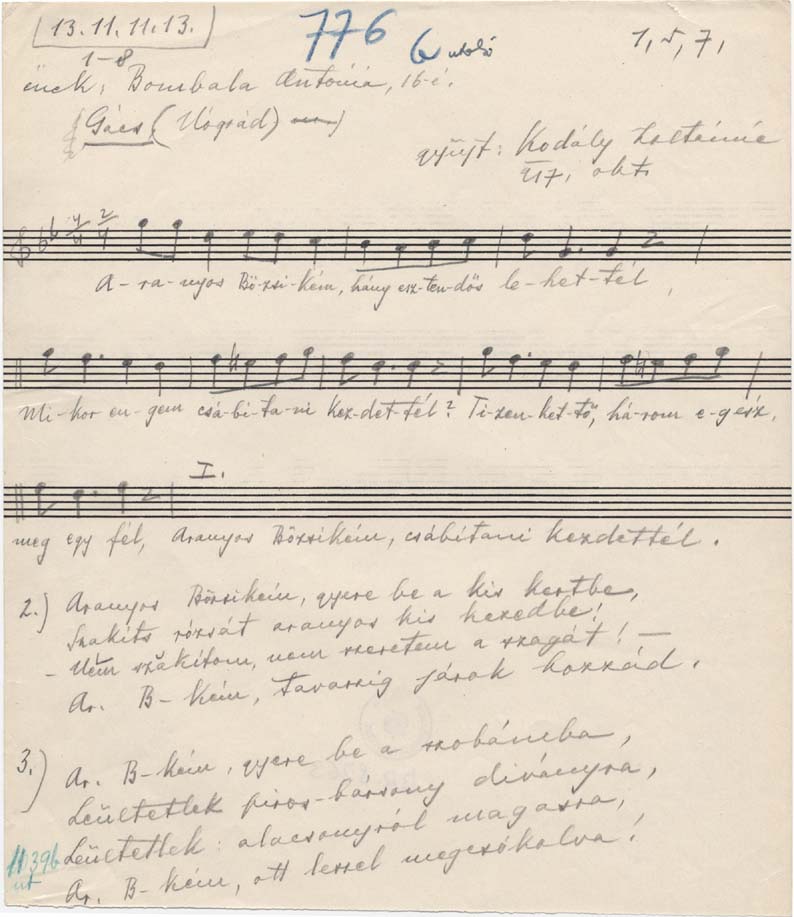 [13.11.11.13.] 776 6 utolsó 1, 5, 7,
1-8
ének: Bombala Antónia, 16 é.
Gács (Nógrád)
gyűjt: Kodály Zoltánné
917, okt.
4/4 2/4
A-ra-nyos Bö-zsi-kém, hány esz-ten-dős le-het-tél,
Mi-kor en-gem csá-bi-ta-ni kez-det-tél? Ti-zen-ket-tő, há-rom e-gész,
I.
meg egy fél, Aranyos Bözsikém, csábítani kezdettél.
2.) Aranyos Bözsikém, gyere be a kis kertbe,
Szakíts rózsát aranyos kis kezedbe!
- Nëm szăkítom, nem szeretem a szagát! -
Ar. B-kém, tavaszig járok hozzád.
3.) Ar. B-kém, gyere be a szobámba,
Leültetlek piros-bársony diványra,
Leültetlek: alacsonyról magasra,
Ar. B-kém, ott leszel megcsókolva!
11396